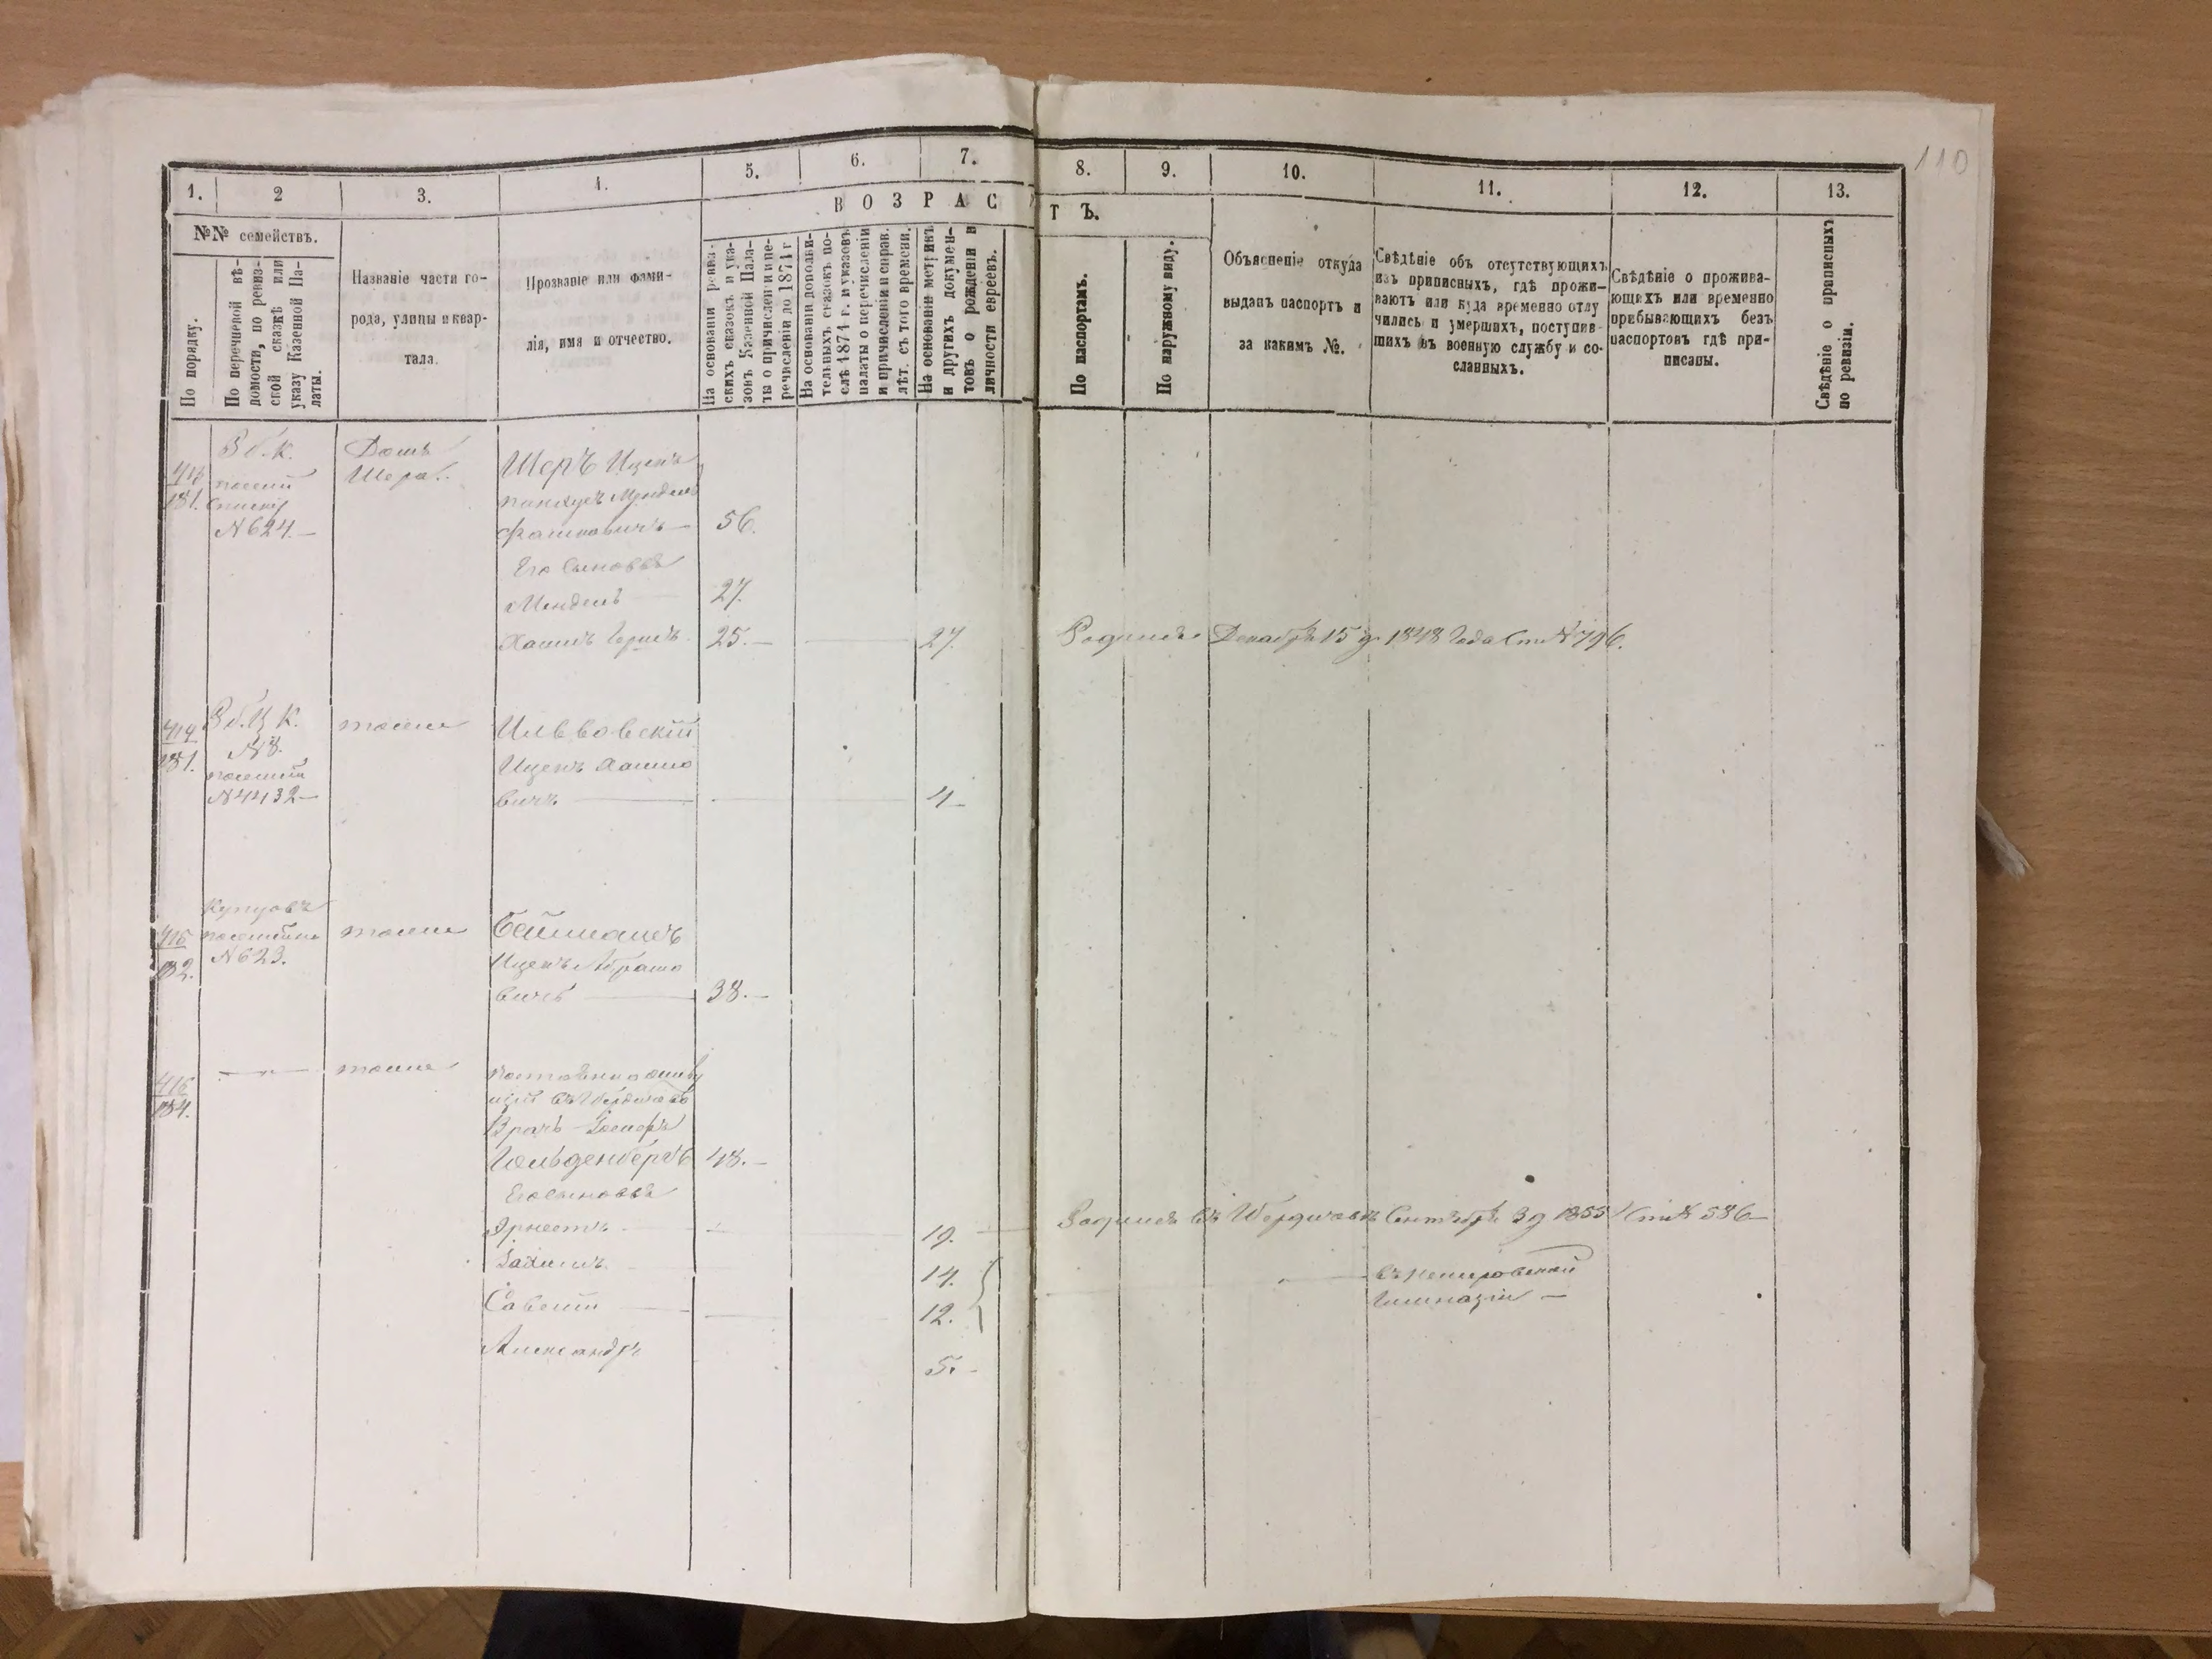 110
1.
2
3.
4.
5.
6.
7.
8.
9.
10.
11.
12.
13.
ВОЗРАС
ТЪ.
№№ семействъ.
По порядку.
По перечневой вѣ-
домости, по ревиз-
ской сказкѣ или
указу Казенной Па-
латы.
Названіе части го-
рода, улицы и квар-
тала.
Прозваніе или фами-
лія, имя и отчество.
На основаніи ревиз-
скихъ сказокъ и ука-
зовъ Казенной Пала-
ты о причисленіи и пе-
речисленіи до 1874 г
На основаніи дополни-
тельныхъ сказокъ по-
слѣ 1874 г. и указовъ
палаты о перечисленіи
и причисленіи и справ.
лѣт. съ того времени.
На основаніи метрикъ
и другихъ докумен-
товъ о рожденіи и
личности евреевъ.
По паспортамъ.
По наружному виду.
Объясненіе откуда
выданъ паспортъ и
за какимъ №.
Свѣдѣніе объ отсутствующихъ
изъ приписныхъ, гдѣ прожи-
ваютъ или куда временно отлу
чились и умершихъ, поступив-
шихъ въ военную службу и со-
сланныхъ.
Свѣдѣніе о прожива-
ющихъ или временно
пребывающихъ безъ
паспортовъ гдѣ при-
писаны.
Свѣдѣніе о приписныхъ
по ревизіи.
413
181.
N 624.—
Домъ
Шера.
Шеръ Ицекъ
Пинкусъ Мендель
Фаликовичъ — 56.
Его сыновья
Мендель — 27.
Хаимъ Гершъ. 25.— 27.
Родился Декабря 15 д. 1848 года Ст. N 796.
414
181.
N 8.
N 4432—
тоже
Ильвовскій
Ицекъ Хаимо
вичъ — 4—
415
182.
Купцовъ
N 623.
тоже
Бейшлаеръ
Ицекъ Абрамо
вичъ — 38.—
416
184.
тоже
постоянно живу
щій въ Бердичевѣ
Врачъ Іосифъ
Гольденбергъ 48.—
Его сыновья
Эрнестъ — 19.
Родился въ Бердичевѣ Сентября 3 д 1855 Ст. N 586—
Іахимъ 14.
Савелій — 12.
въ Немировской
Гимназіи —
Александръ 5.—